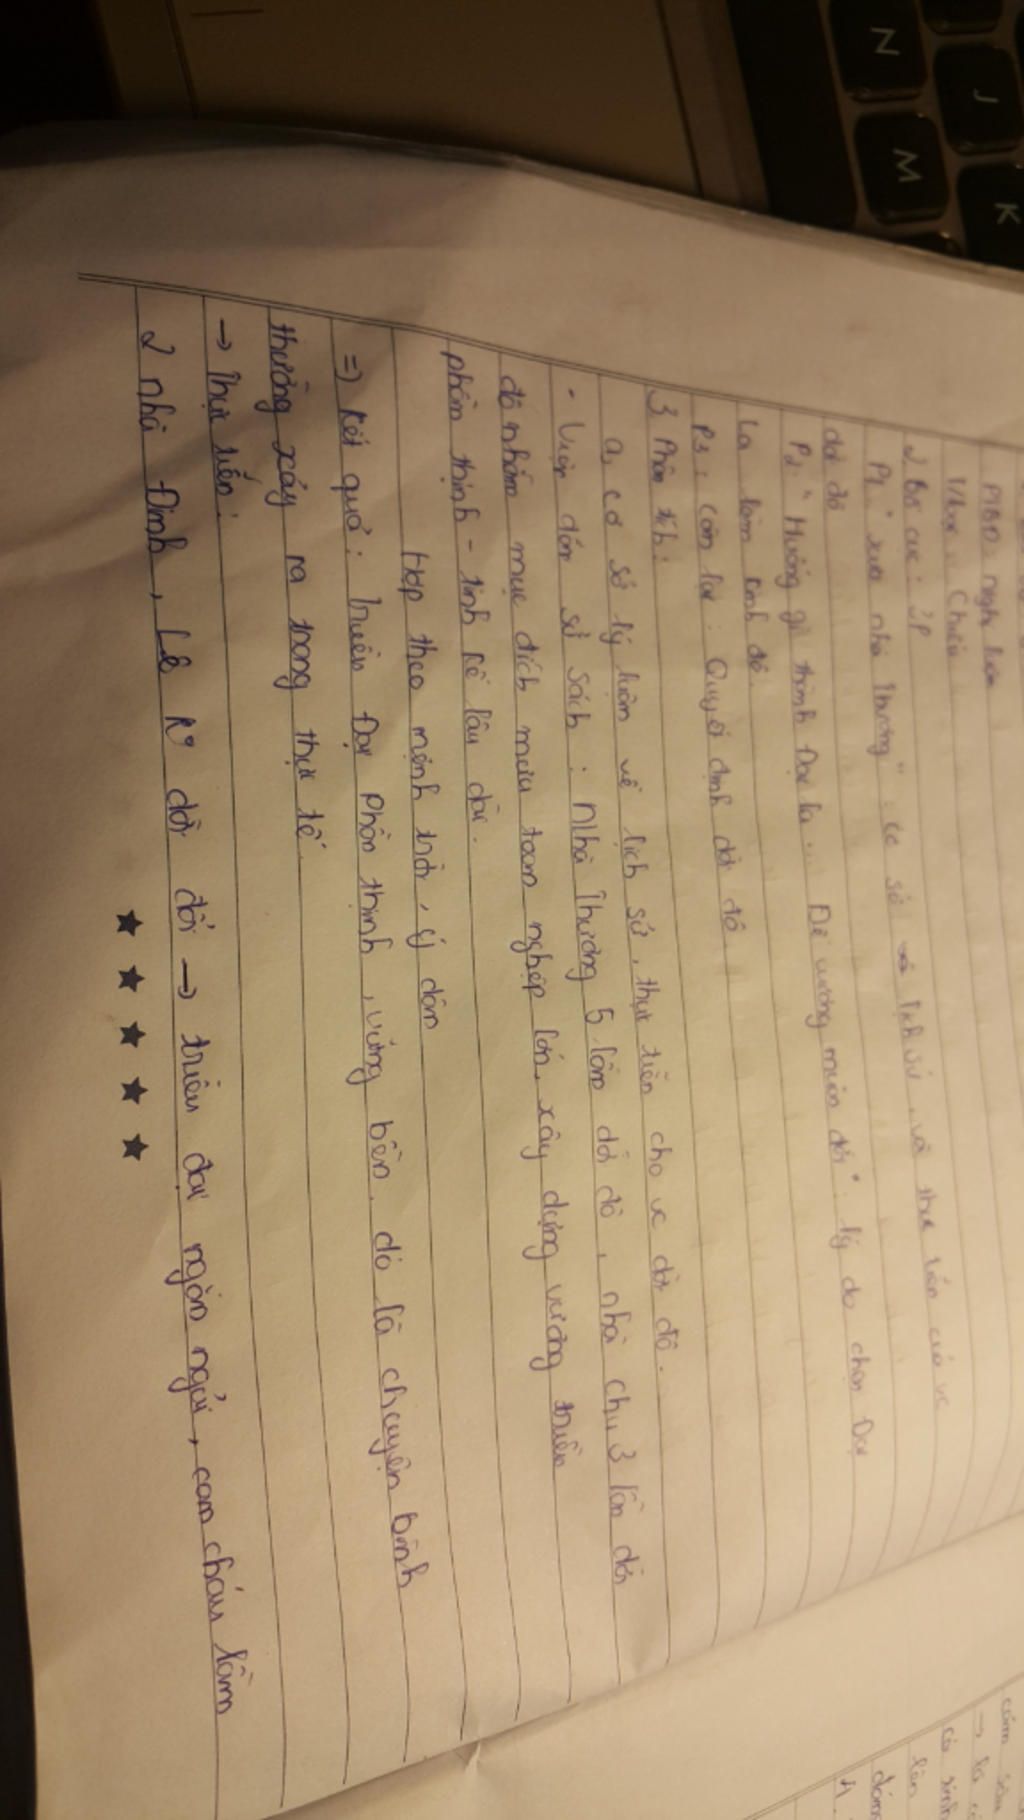 PTBĐ nghị luận
T/loại: Chiếu
2 Bố cục: 3P
P1 "xưa nhà Thương" cơ sở lịch sử và thực tiễn của vc
dời đô
P2: "Huống gì thành Đại La... Đế vương muôn đời": lý do chọn Đại
La làm kinh đô.
P3: còn lại: Quyết định dời đô
3 Phân tích:
a, cơ sở lý luận về lịch sử, thực tiễn cho vc dời đô.
- Viện dẫn sử sách: Nhà Thương 5 lần dời đô, nhà chu 3 lần dời
đô nhằm mục đích mưu toan nghiệp lớn, xây dựng vương triều
phồn thịnh - tính kế lâu dài.
Hợp theo mệnh trời, ý dân
=) Kết quả: triều Đại phồn thịnh, vững bền. đó là chuyện bình
thường xảy ra trong thực tế.
→ Thực tiễn:
2 nhà Đinh, Lê k° dời đổi → triều đại ngắn ngủi, con cháu lầm
★ ★ ★ ★ ★
N
J
M
K